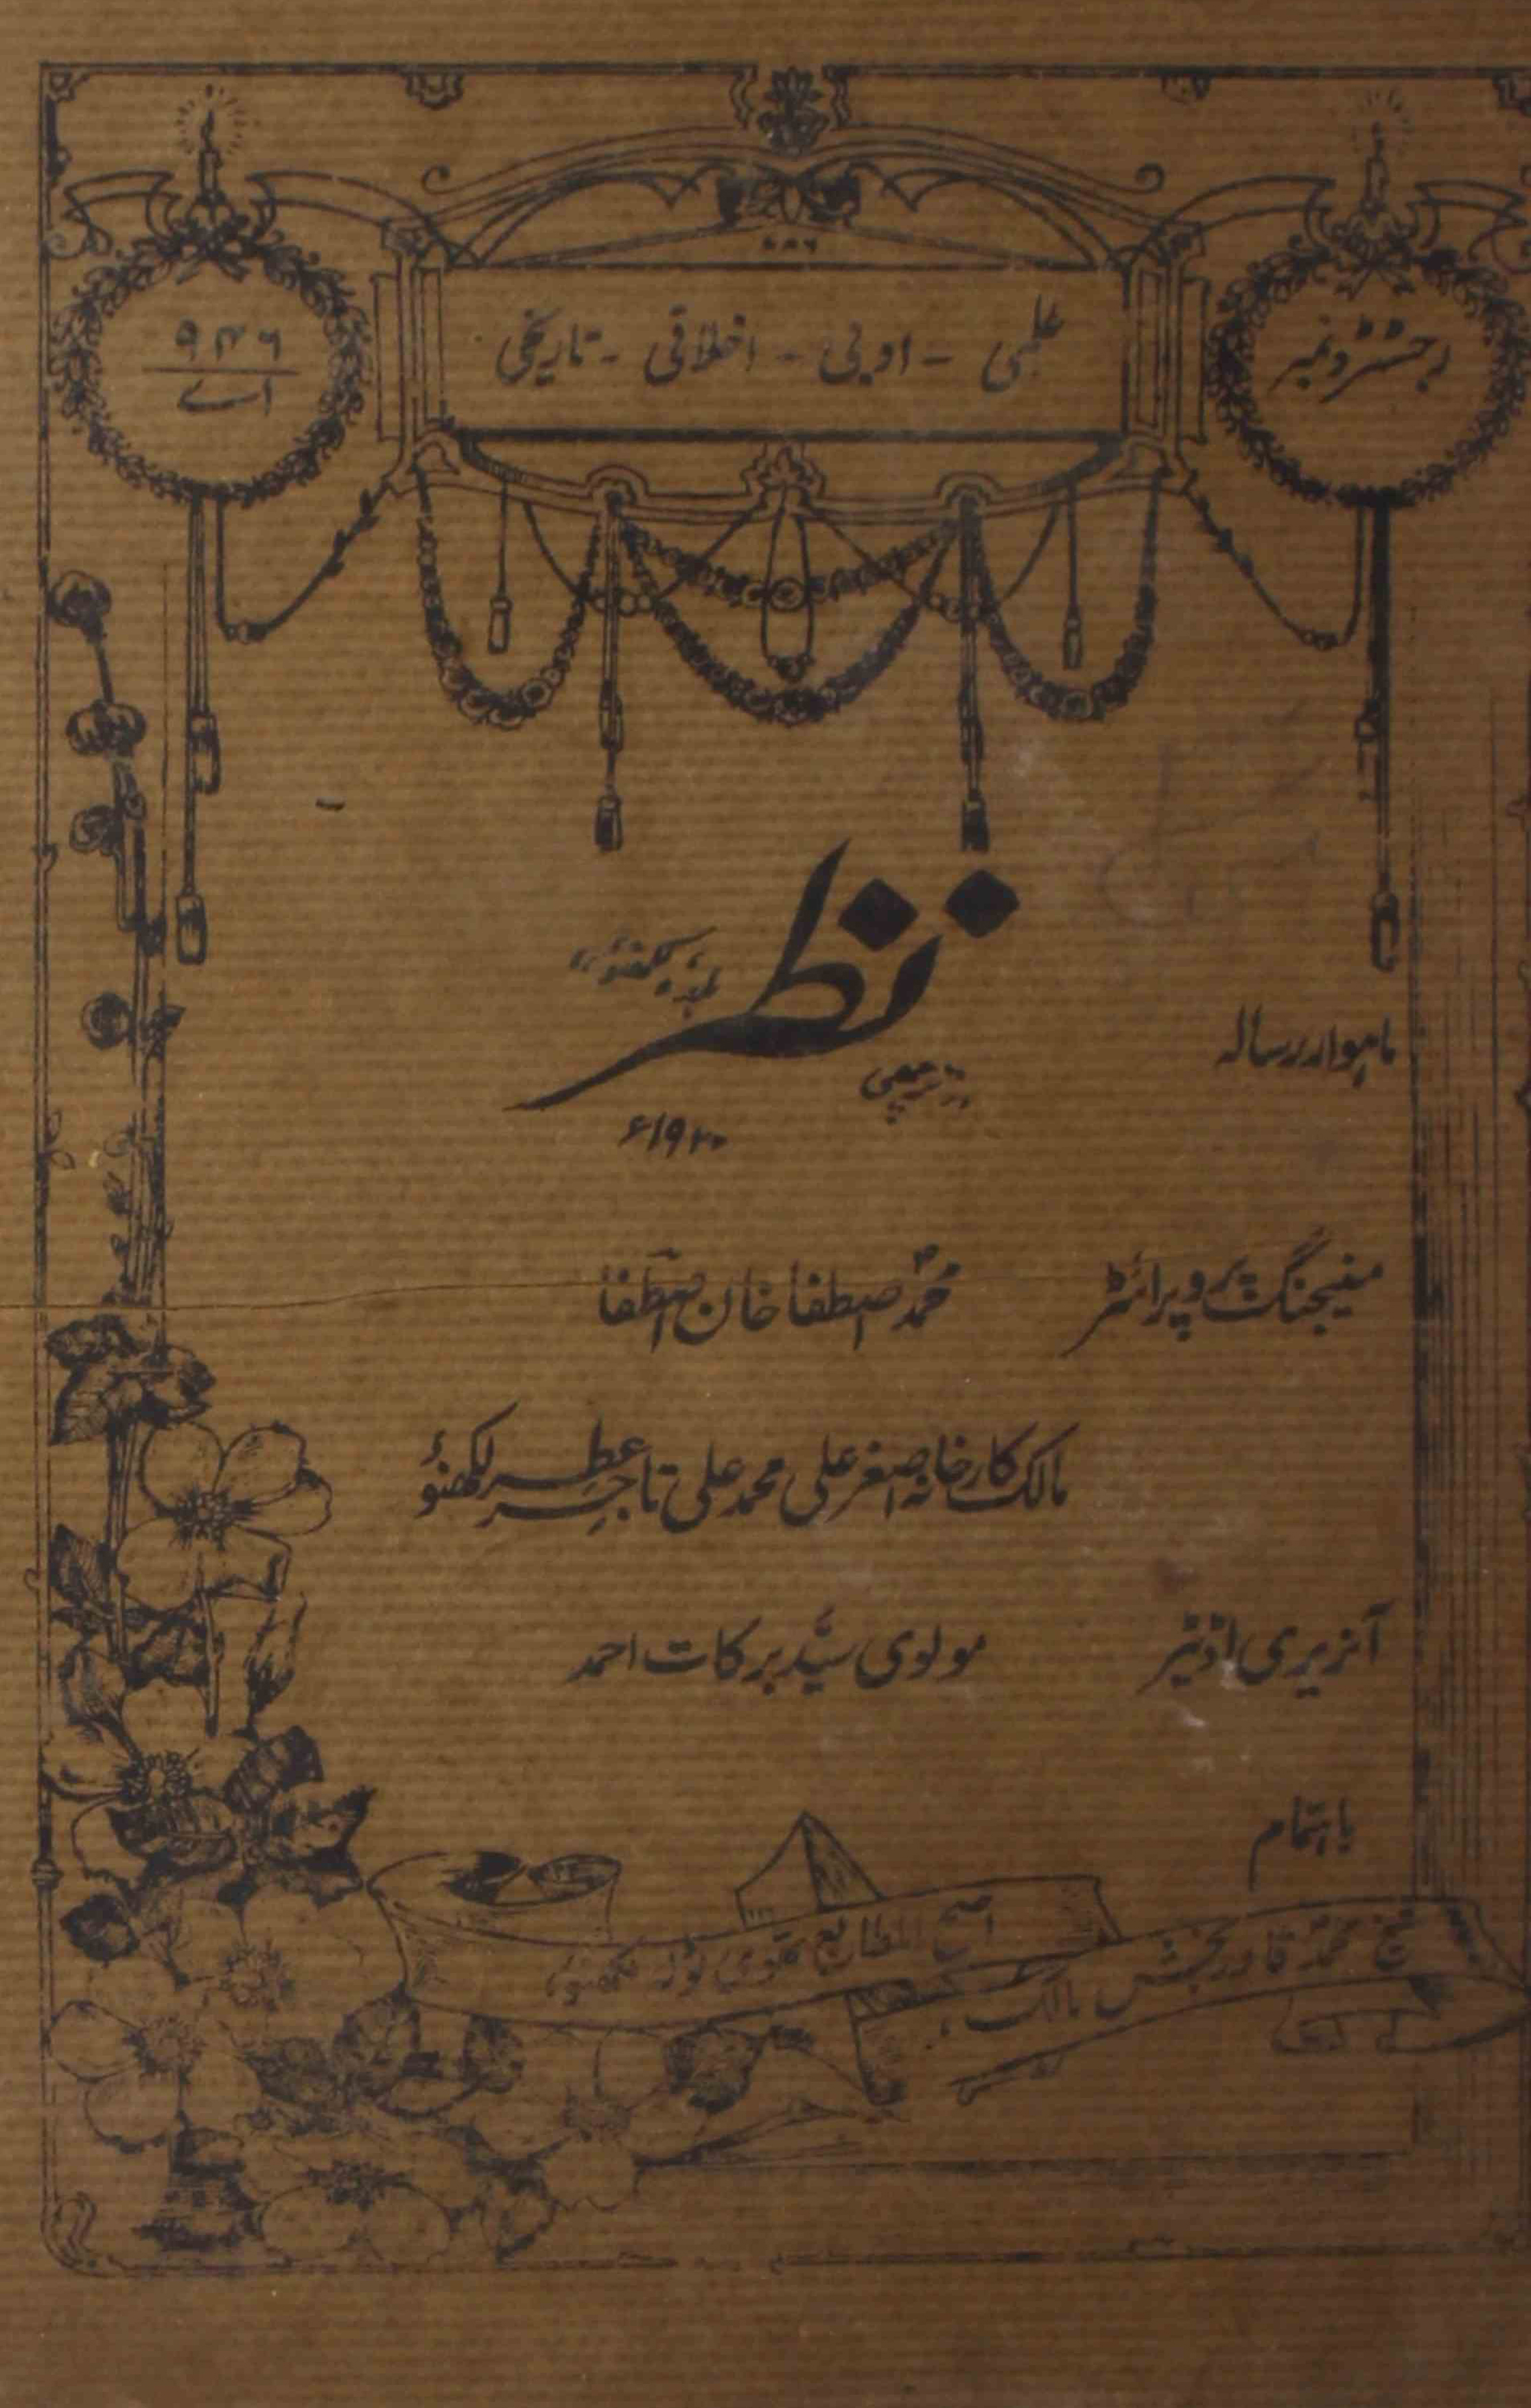 ۷۸۶
رجسٹرڈ نمبر
علمی - ادبی - اخلاقی - تاریخی
۹۳۶
اے
ماہوار رسالہ
نظر
لکھنؤ
۱۹۲۰ء
منیجنگ پروپرائٹر محمد اصطفا خان اصطفا
مالک کارخانہ اصغر علی محمد علی تاجر عطر لکھنؤ
آنریری اڈیٹر مولوی سید برکات احمد
باہتمام
شیخ محمد قادر بخش مالک
اصح المطابع نقوی ٹولہ لکھنؤ